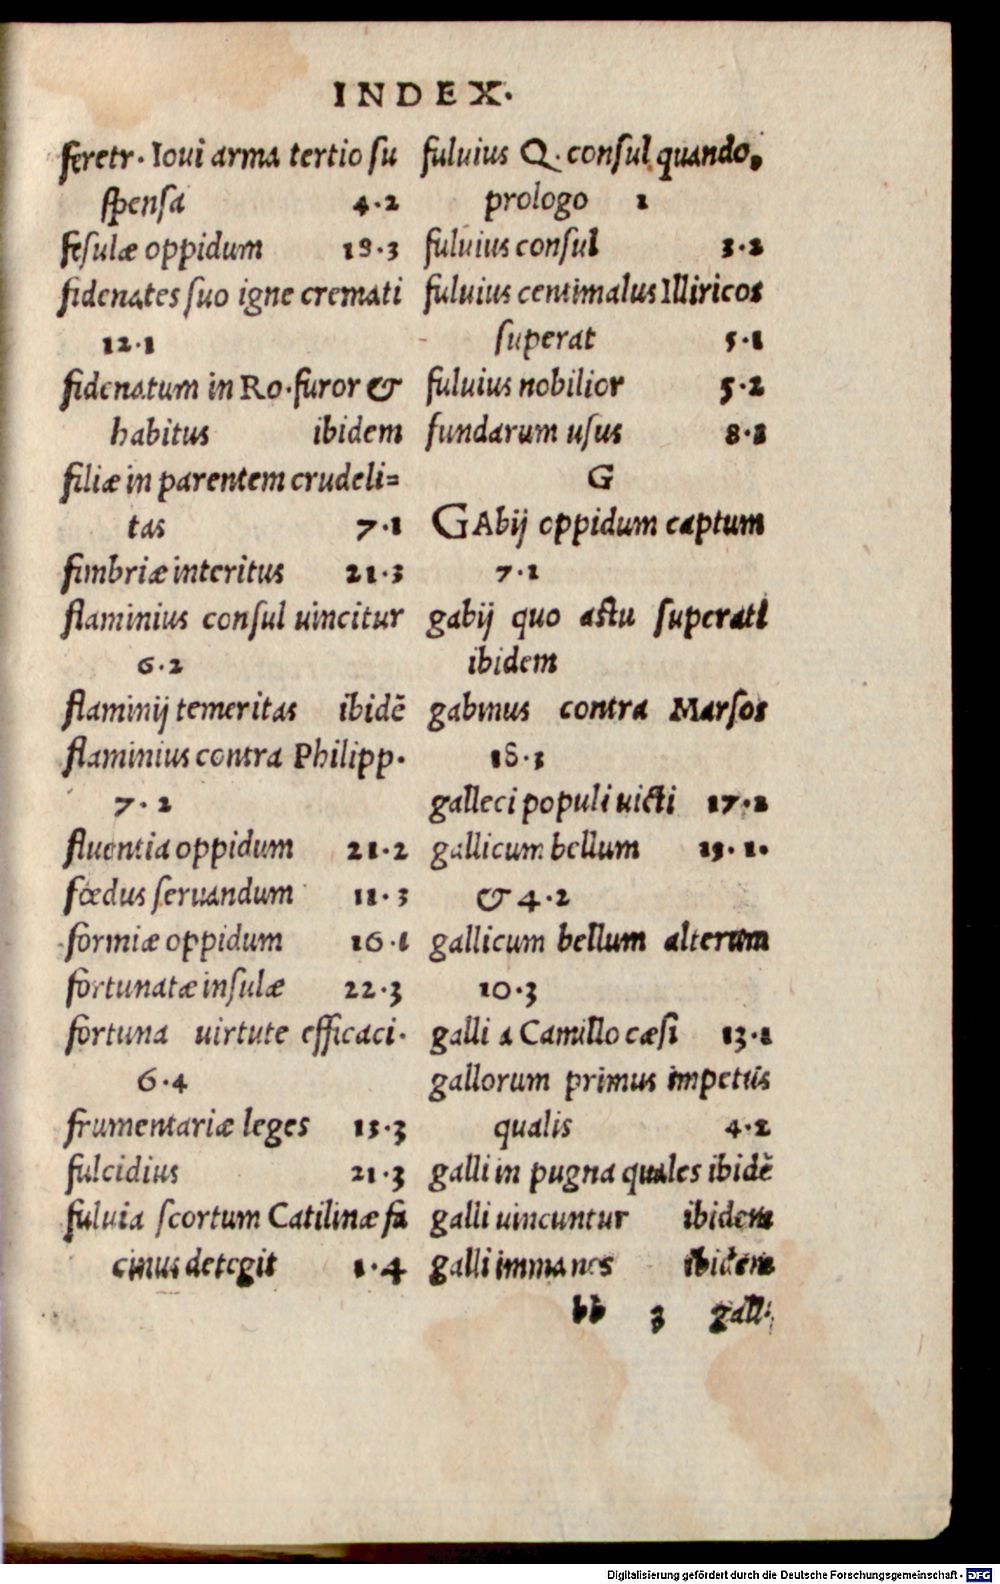 INDEX.
feretr. Ioui arma tertio su
spensa 4.2
fesulæ oppidum 18.3
fidenates suo igne cremati
12.1
fidenatum in Ro. furor &
habitus ibidem
filiæ in parentem crudeli=
tas 7.1
fimbriæ interitus 21.3
flaminius consul uincitur
6.2
flaminij temeritas ibidē
flaminius contra Philipp.
7.2
fluentia oppidum 21.2
fœdus seruandum 11.3
formiæ oppidum 16.1
fortunatæ insulæ 22.3
fortuna uirtute efficaci.
6.4
frumentariæ leges 15.3
fulcidius 21.3
fuluia scortum Catilinæ fa
cinus detegit 1.4
fuluius Q. consul quando,
prologo 1
fuluius consul 3.2
fuluius centimalus Illiricos
superat 5.1
fuluius nobilior 5.2
fundarum usus 8.2
G
GAbij oppidum captum
7.1
gabij quo astu superati
ibidem
gabinus contra Marsos
18.3
galleci populi uicti 17.2
gallicum bellum 13.1.
& 4.2
gallicum bellum alterum
10.3
galli a Camillo cæsi 13.1
gallorum primus impetus
qualis 4.2
galli in pugna quales ibidē
galli uincuntur ibidem
galli immanes ibidem
bb 3 galli
Digitalisierung gefördert durch die Deutsche Forschungsgemeinschaft - DFG